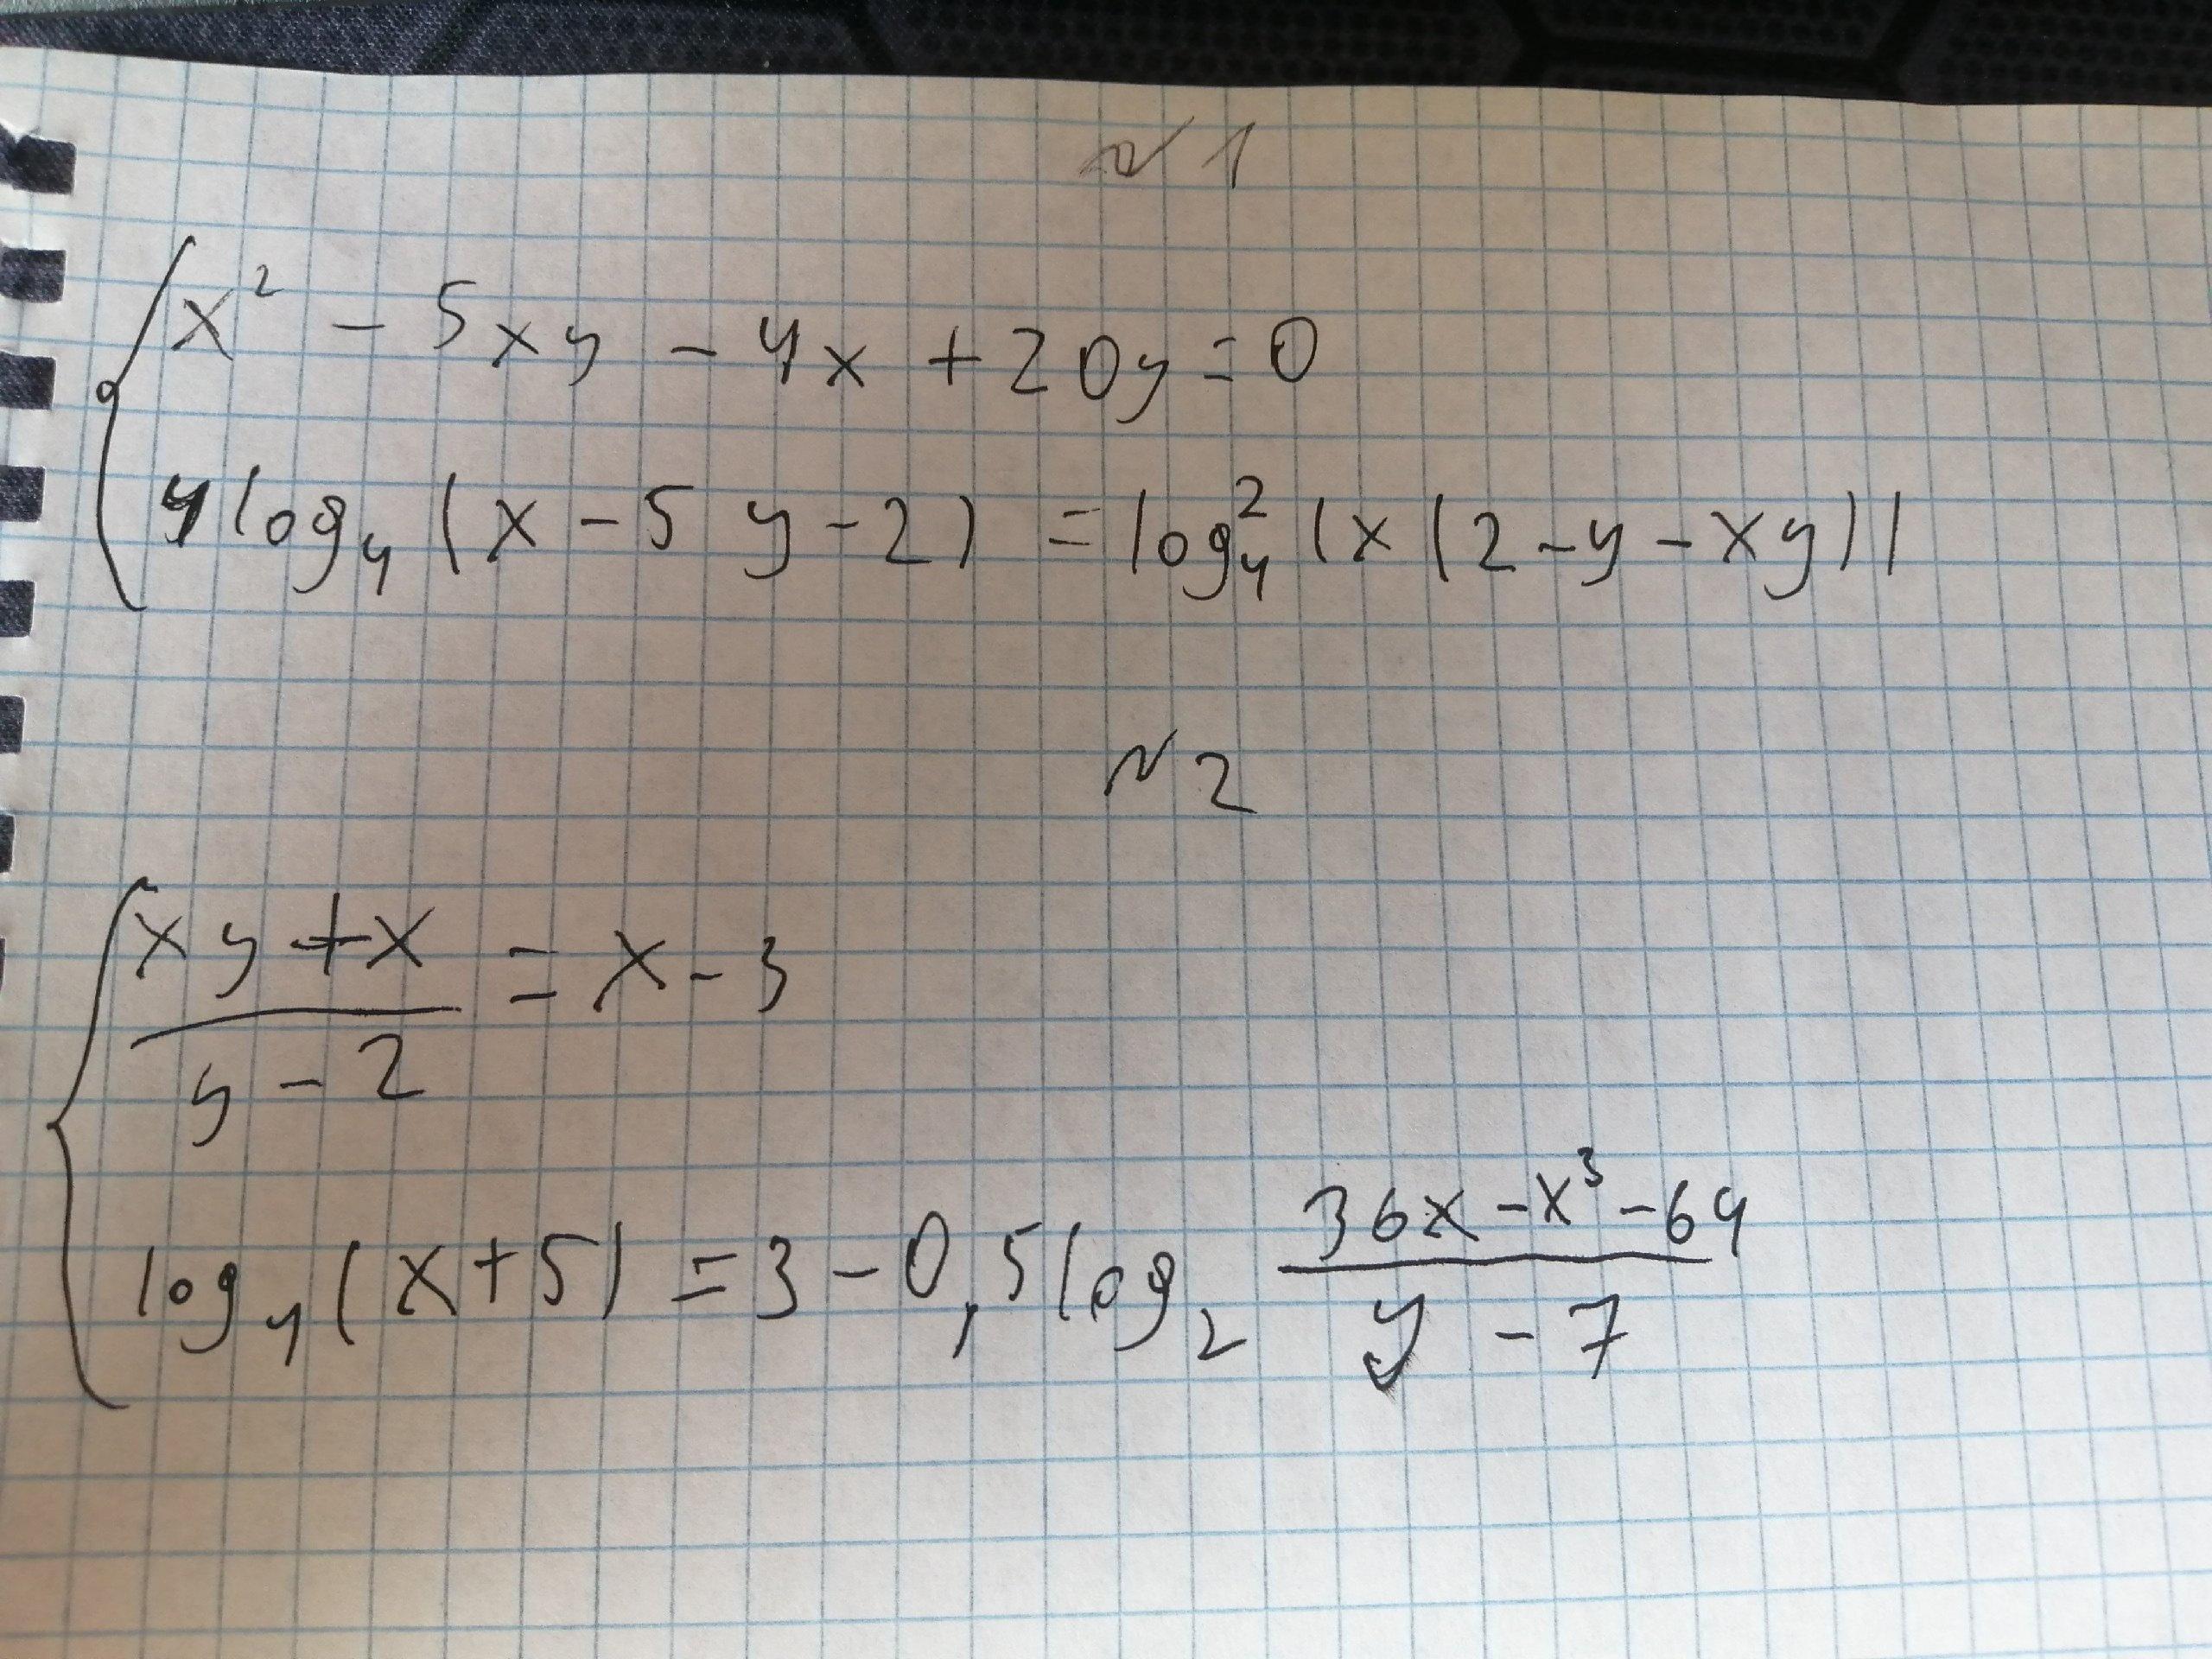 № 1
x² - 5xy - 4x + 20y = 0
4log₄(x - 5y - 2) = log₄²(x(2 - y - xy))
№ 2
(xy + x)/(y - 2) = x - 3
log₄(x + 5) = 3 - 0,5log₂ (36x - x³ - 64)/(y - 7)